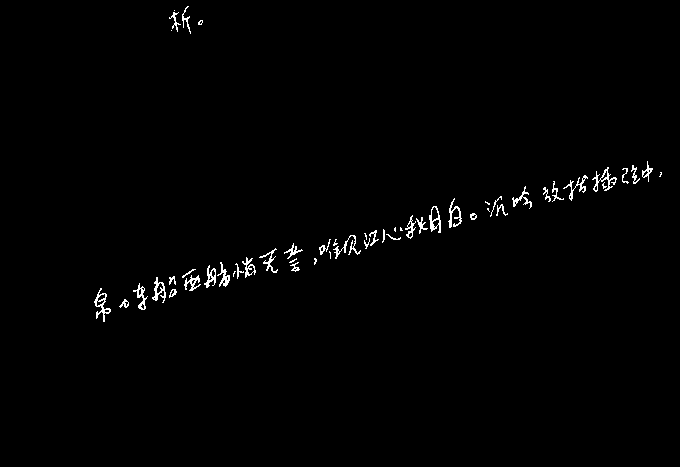 析。
帛。东船西舫悄无言,唯见江心秋月白。沉吟放拨插弦中,